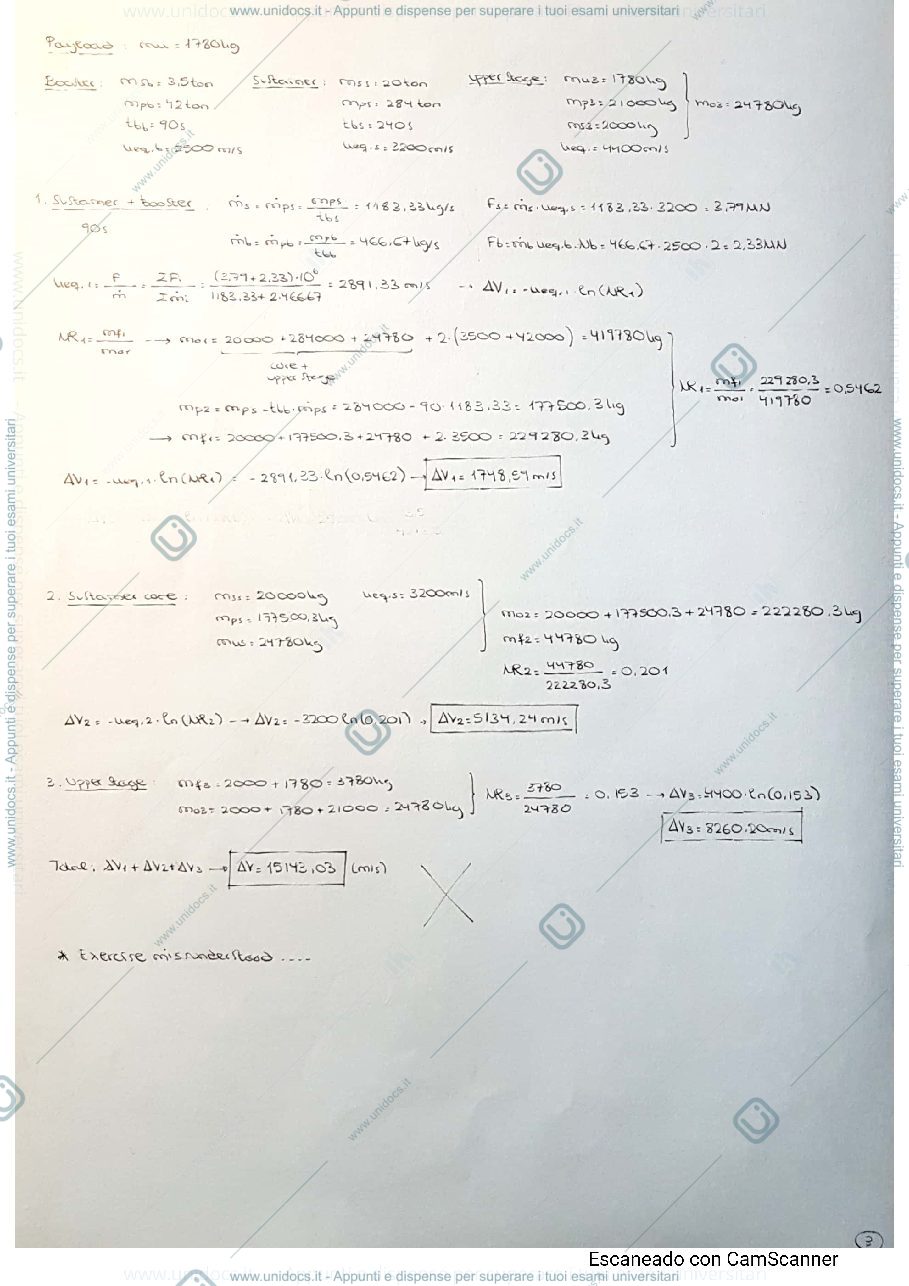 www.unidocs.it - Appunti e dispense per superare i tuoi esami universitari
Payload: mu = 1780kg
Booster: msb = 3,5ton Sustainer: mss = 20ton Upper Stage: mu3 = 1780kg
mpb = 42ton mps = 284ton mp3 = 21000kg mo3 = 24780kg
tbb = 90s tbs = 240s ms3 = 2000kg
ueq.b = 2500 m/s ueq.s = 3200m/s ueq. = 4400m/s
1. Sustainer + booster ṁs = ṁps = mps/tbs = 1183,33kg/s Fs = ṁs · ueq.s = 1183,33 · 3200 = 3,79MN
90s ṁb = ṁpb = mpb/tbb = 466,67kg/s Fb = ṁb ueq.b · Nb = 466,67 · 2500 · 2 = 2,33MN
ueq,1 = F/ṁ = ΣFi/Σṁi = (3,79+2,33)·10⁶/1183.33+2·466,67 = 2891,33 m/s → ΔV1 = -ueq,1 · ln(NR1)
NR1 = mf1/mo1 → mo1 = 20000 + 284000 + 24780 + 2·(3500+42000) = 419780kg
core +
upper stage
NR1 = mf1/mo1 = 229280,3/419780 = 0,5462
mp2 = mps - tbb · ṁps = 284000 - 90 · 1183,33 = 177500,3kg
→ mf1 = 20000 + 177500.3 + 24780 + 2·3500 = 229280,3kg
ΔV1 = -ueq,1 · ln(NR1) = -2891,33 · ln(0,5462) → ΔV1 = 1748,59 m/s
2. Sustainer core: mss = 20000kg ueq.s = 3200m/s
mps = 177500,3kg mo2 = 20000 + 177500.3 + 24780 = 222280.3kg
mus = 24780kg mf2 = 44780 kg
NR2 = 44780/222280,3 = 0,201
ΔV2 = -ueq,2 · ln(NR2) → ΔV2 = -3200 ln(0,201) → ΔV2 = 5134,24 m/s
3. Upper Stage: mf3 = 2000 + 1780 = 3780kg
mo3 = 2000 + 1780 + 21000 = 24780kg NR3 = 3780/24780 = 0,153 → ΔV3 = 4400 · ln(0,153)
ΔV3 = 8260.20m/s
Total: ΔV1 + ΔV2 + ΔV3 → ΔV = 15143,03 (m/s)
* Exercise misunderstood ....
3
Escaneado con CamScanner
www.unidocs.it - Appunti e dispense per superare i tuoi esami universitari